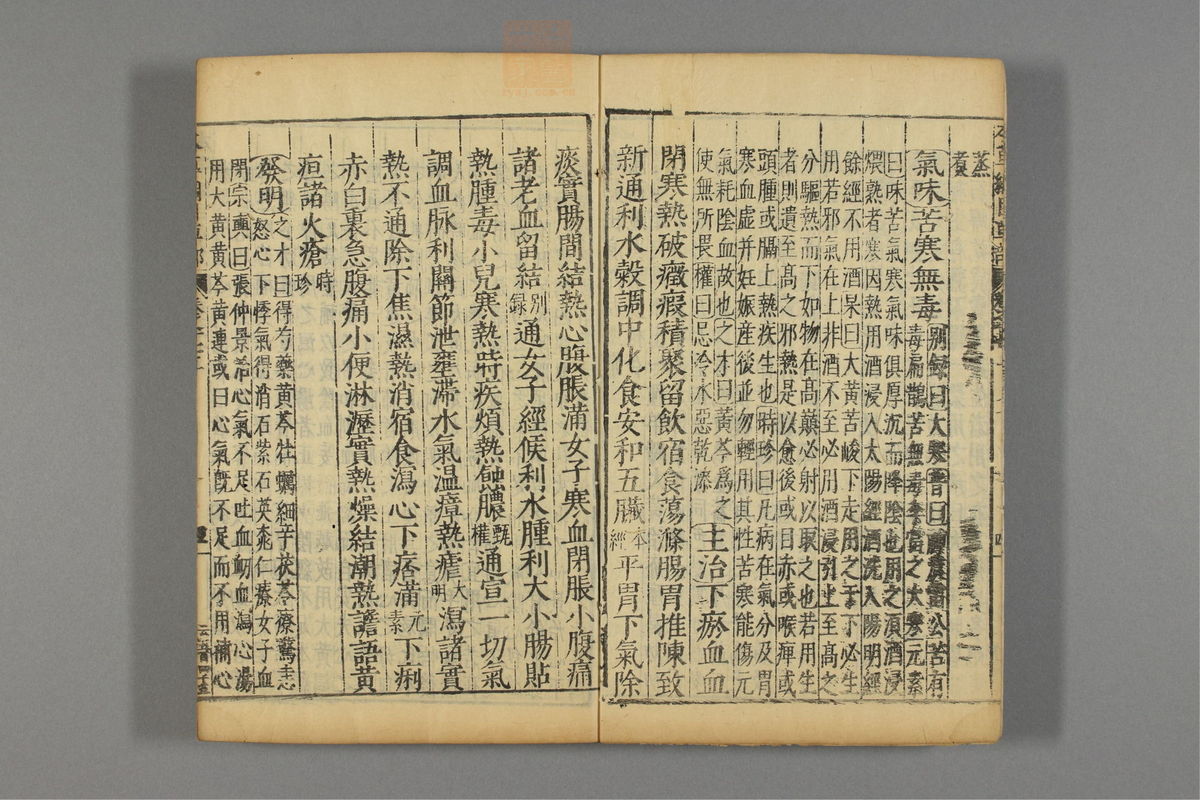 蒸
㸑
氣味苦寒無毒 别錄曰大寒普曰神農雷公苦有
毒扁鵲苦無毒李當之大寒元素
曰味苦氣寒氣味俱厚沉而降陰也用之須酒浸
煨熟者寒因熱用酒浸入太陽經酒洗入陽明經
餘經不用酒杲曰大黄苦峻下走用之于下必生
用若邪氣在上非酒不至必用酒浸引上至髙之
分驅熱而下如物在髙巔必射以取之也若用生
者則遺至髙之邪熱是以愈後或目赤或喉痺或
頭腫或膈上熱疾生也時珍曰凡病在氣分及胃
寒血虚并妊娠産後並勿輕用其性苦寒能傷元
氣耗陰血故也之才曰黄芩爲之
使無所畏權曰忌冷水惡乾漆 主治下瘀血血
閉寒熱破癥瘕積聚留飲宿食蕩滌腸胃推陳致
新通利水穀調中化食安和五臟 本經 平胃下氣除
痰實腸間結熱心腹脹滿女子寒血閉脹小腹痛
諸老血留結 别録 通女子經候利水腫利大小腸貼
熱腫毒小兒寒熱時疾煩熱蝕膿 甄權 通宣一切氣
調血脉利關節泄壅滯水氣温瘴熱瘧 大明 瀉諸實
熱不通除下焦濕熱消宿食瀉心下痞滿 元素 下痢
赤白裏急腹痛小便淋瀝實熱燥結潮熱譫語黄
疸諸火瘡 時珍
發明 之才曰得芍藥黄芩牡蠣細辛茯苓療驚恚
怒心下悸氣得消石紫石英桃仁療女子血
閉宗奭曰張仲景治心氣不足吐血衂血瀉心湯
用大黄黄芩黄連或曰心氣既不足而不用補心